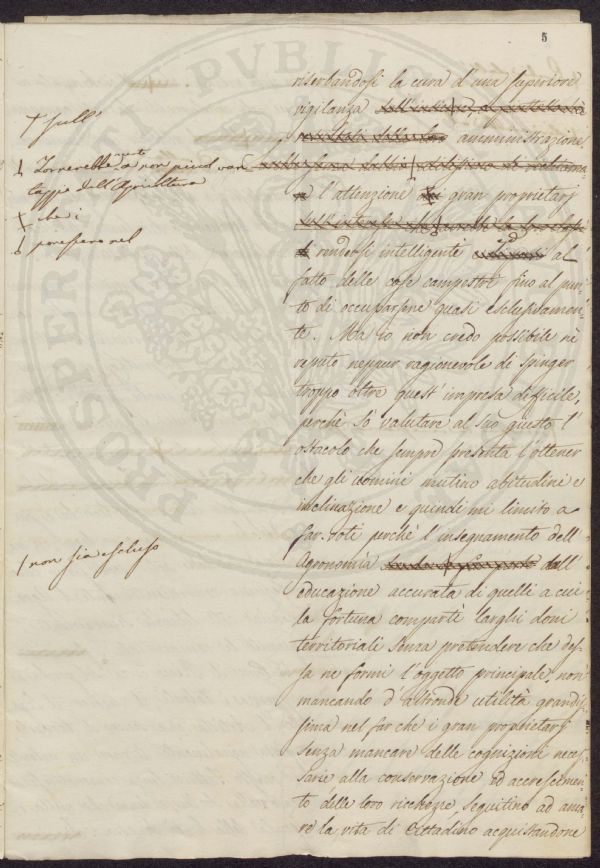 5
riserbandosi la cura d'una superiore
vigilanza amministrazione
† sull'
Tornerebbe a non piccol van
taggio dell'Agricultura
e l'attenzione gran proprietarj
X che i
ponessero nel
rendersi intelligente al
fatto delle cose campestri fino al pun
to di occuparsene quasi esclusivamen
te. Ma io non credo possibile nè
reputo neppur ragionevole di spinger
troppo oltre quest'impresa difficile,
perchè so valutare al suo giusto l'
ostacolo che sempre presenta l'ottener
che gli uomini mutino abitudini e
inclinazione e quindi mi limito a
far voti perchè l'insegnamento dell'
Agronomia dall'
/ non sia escluso
educazione accurata di quelli a cui
la fortuna compartì larghi doni
territoriali senza pretendere che des
sa ne formi l'oggetto principale, non
mancando d'altronde utilità grandis
sima nel far che i gran proprietarj
senza mancare delle cognizioni neces
sarie alla conservazione ed accrescimen
to delle loro ricchezze, seguitino ad ama
re la vita di Cittadino acquistandone
PROSPERITATI PVBLICAE